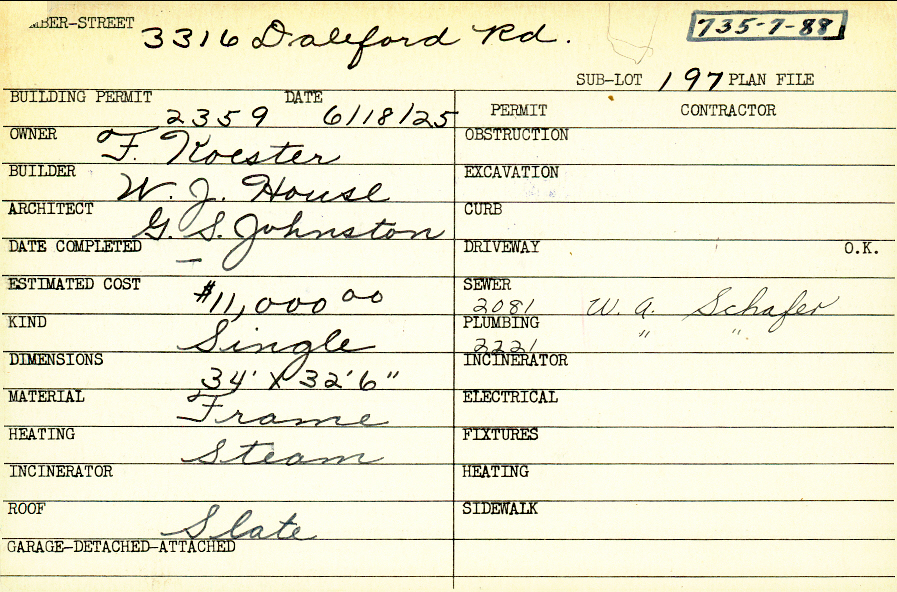 MBER-STREET 3316 Daleford Rd. 735-7-88
SUB-LOT 197 PLAN FILE
BUILDING PERMIT 2359 DATE 6/18/25
OWNER F. Koester
BUILDER W. J. House
ARCHITECT G. S. Johnston
DATE COMPLETED —
ESTIMATED COST $11,000 00
KIND Single
DIMENSIONS 34' X 32'6"
MATERIAL Frame
HEATING Steam
INCINERATOR
ROOF Slate
GARAGE-DETACHED-ATTACHED
PERMIT CONTRACTOR
OBSTRUCTION
EXCAVATION
CURB
DRIVEWAY O.K.
SEWER 2081 W. A. Schafer
PLUMBING 2221 " "
INCINERATOR
ELECTRICAL
FIXTURES
HEATING
SIDEWALK